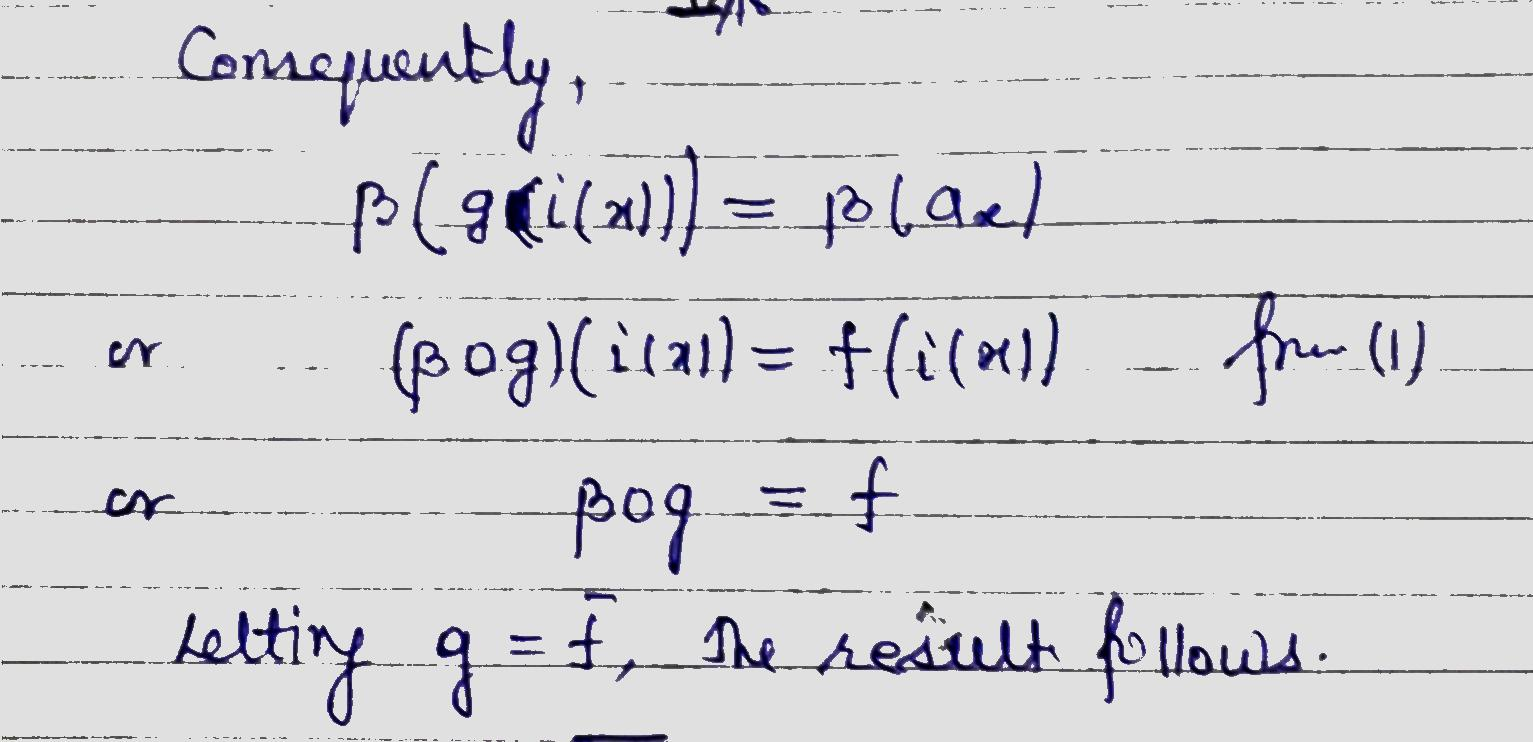 Consequently,
β(g(i(x))) = β(aₓ)
or (β∘g)(i(x)) = f(i(x)) from (1)
or β∘g = f
Letting g = f̄, the result follows.